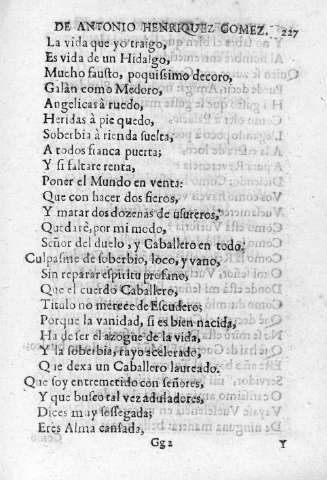 DE ANTONIO HENRIQUEZ GOMEZ. 227
La vida que yo traigo,
Es vida de un Hidalgo,
Mucho fausto, poquissimo decoro,
Galàn como Medoro,
Angelicas à ruedo,
Heridas à pie quedo,
Soberbia à rienda suelta,
A todos fianca puerta;
Y si faltare renta,
Poner el Mundo en venta:
Que con hacer dos fieros,
Y matar dos dozenas de usureros,
Quedarè, por mi modo,
Señor del duelo, y Caballero en todo.
Culpasme de soberbio, loco, y vano,
Sin reparar espiritu profano,
Que el cuerdo Caballero,
Titulo no merece de Escudero;
Porque la vanidad, si es bien nacida,
Ha de ser el azogue de la vida,
Y la soberbia, rayo acelerado,
Que dexa un Caballero laureado.
Que soy entremetido con señores,
Y que busco tal vez aduladores,
Dices muy sossegada;
Eres Alma cansada,
Gg2 Y